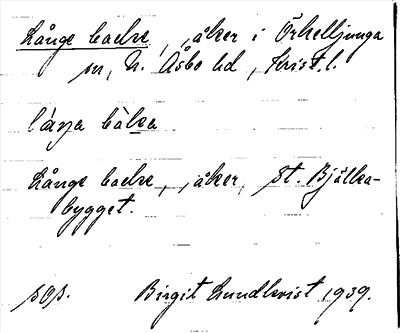 Långe backe, åker i Örkelljunga
sn, N. Åsbo hd, Krist. l.
långa bàka
Långe backe, åker, St. Bjälka-
bygget.
sOp. Birgit Lundkvist 1939.